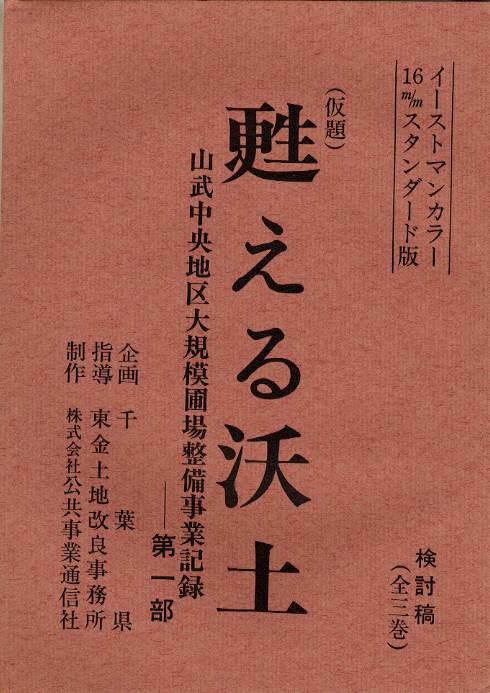 イーストマンカラー
16m/mスタンダード版
検討稿
(全三巻)
(仮題)
甦える沃土
山武中央地区大規模圃場整備事業記録
──第一部
企画 千葉県
指導 東金土地改良事務所
制作 株式会社公共事業通信社